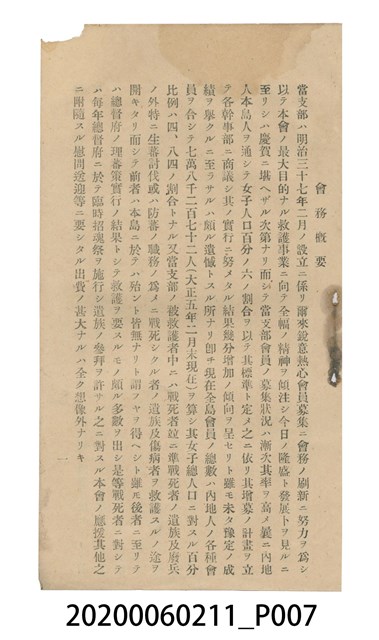 會務概要
當支部ハ明治三十七年二月ノ設立ニ係リ爾來銳意熱心會員募集ニ會務ノ刷新ニ努力ヲ爲シ
以テ本會ノ最大目的ナル救護事業ニ向テ全幅ノ精神ヲ傾注シ今日ノ隆盛ト發展トヲ見ルニ
至リシハ慶賀ニ堪ヘザル次第ナリ而シテ當支部會員ノ募集狀況ハ漸次其率ヲ高メ曩ニ內地
人本島人ヲ通シテ女子人口百分ノ六ノ割合ヲ以テ其標準ト定メ之ニ依リ其增募ノ計畫ヲ立
テ各幹事部ニ商議シ其ノ實行ニ努メタル結果幾分增加ノ傾向ヲ呈セリト雖モ未タ豫定ノ成
績ヲ擧クルニ至ラサルハ頗ル遺憾トスル所ナリ卽チ現在全島會員ノ總數ハ內地人ノ各種會
員ヲ合シテ七萬八千二百七十二人（大正五年二月末現在）ヲ算シ其女子總人口ニ對スル百分
比例ハ四、八四ノ割合トナル又當支部ノ被救護者中ニハ戰死者竝ニ準戰死者ノ遺族及廢兵
ノ外特ニ生蕃討伐或ハ防蕃ノ職務ノ爲メニ戰死シタル者ノ遺族及傷病者ヲ救護スルノ途ヲ
開キタリ而シテ前者ハ本島ニ於テハ殆ント皆無ナリト謂フヤヲ得ヘシト雖モ後者ニ至リテ
ハ總督府ノ理蕃策實行ノ結果トシテ救護ヲ要スルモノ頗ル多數ヲ出シ是等戰死者ニ對シテ
ハ每年總督府ニ於テ臨時招魂祭ヲ施行シ遺族ノ參拜ヲ許サル之ニ對スル本會ノ應援其他之
ニ附隨スル慰問送迎等ニ要シタル出費ノ甚大ナルハ全タ想像外ナリキ
一
20200060211_P007